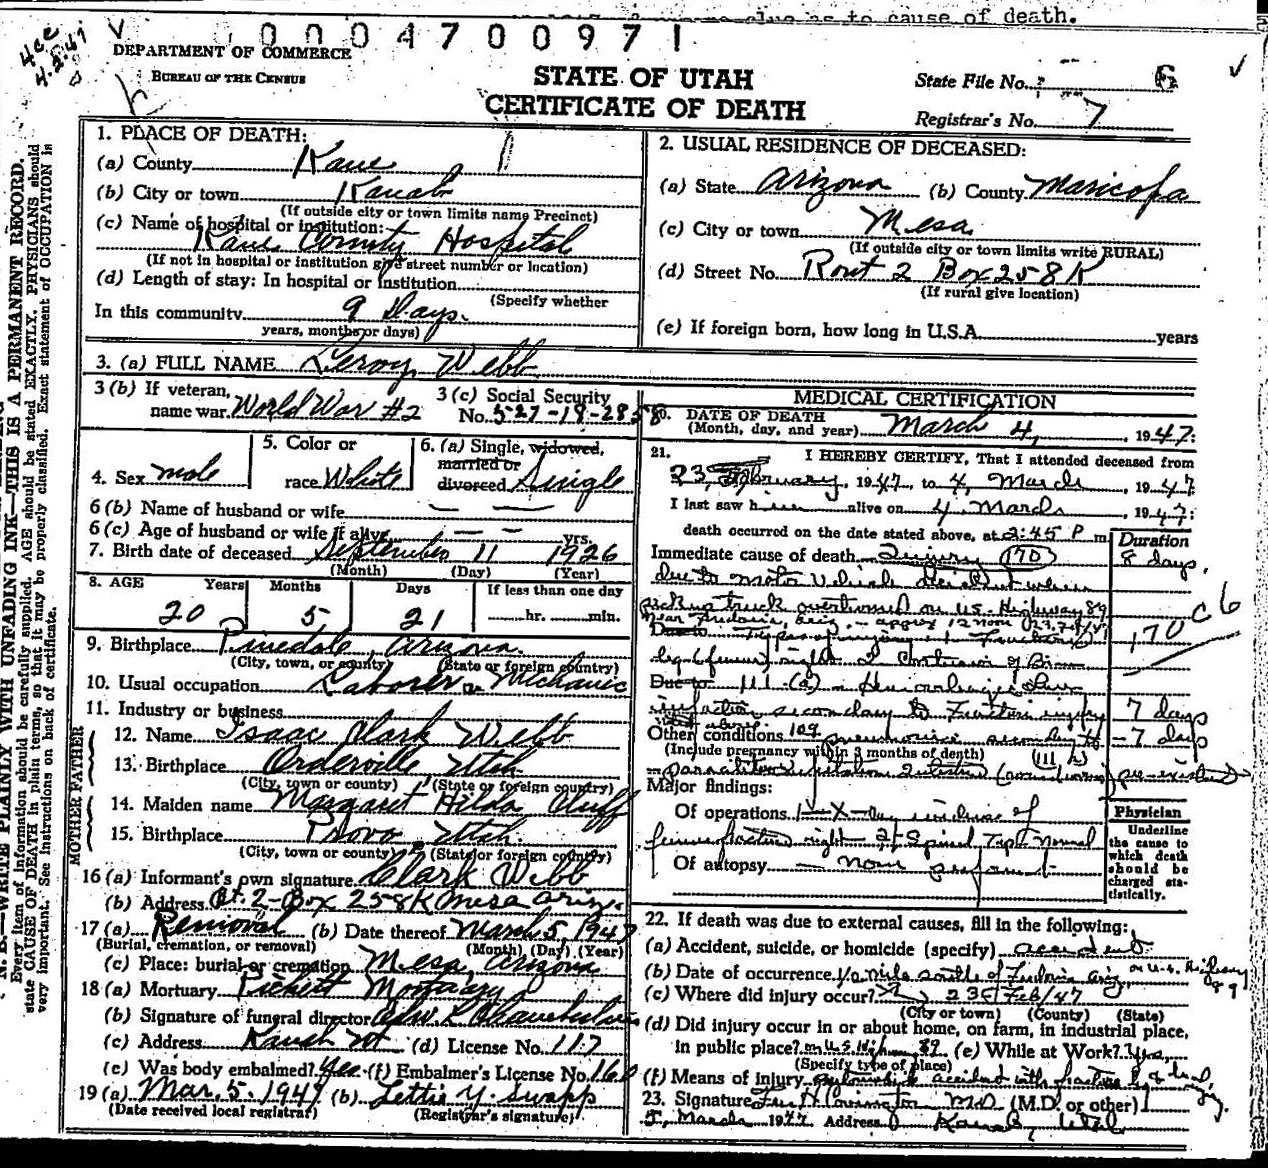 as to cause of death.
4cc
4.2.47
0004700971
DEPARTMENT OF COMMERCE
BUREAU OF THE CENSUS
STATE OF UTAH
CERTIFICATE OF DEATH
State File No. 6
Registrar's No. 7
N. B.—WRITE PLAINLY WITH UNFADING INK—THIS IS A PERMANENT RECORD.
Every item of information should be carefully supplied. AGE should be stated EXACTLY. PHYSICIANS should
state CAUSE OF DEATH in plain terms, so that it may be properly classified. Exact statement of OCCUPATION is
very important. See instructions on back of certificate.
1. PLACE OF DEATH:
(a) County Kane
(b) City or town Kanab
(If outside city or town limits name Precinct)
(c) Name of hospital or institution:
Kane County Hospital
(If not in hospital or institution give street number or location)
(d) Length of stay: In hospital or Institution
(Specify whether
In this community 9 Days.
years, months or days)
2. USUAL RESIDENCE OF DECEASED:
(a) State Arizona (b) County Maricopa
(c) City or town Mesa
(If outside city or town limits write RURAL)
(d) Street No. Rout 2 Box 258K
(If rural give location)
(e) If foreign born, how long in U.S.A. years
3. (a) FULL NAME Leroy Webb
3 (b) If veteran, name war. World War #2
3 (c) Social Security No. 527-18-2858
4. Sex male
5. Color or race White
6. (a) Single, widowed, married or divorced Single
6 (b) Name of husband or wife — —
6 (c) Age of husband or wife if alive — — yrs.
7. Birth date of deceased September 11 1926
(Month) (Day) (Year)
8. AGE Years Months Days If less than one day
20 5 21 hr. min.
9. Birthplace Pinedale, Arizona.
(City, town, or county) (State or foreign country)
10. Usual occupation Laborer or Mechanic
11. Industry or business
FATHER
12. Name Isaac Clark Webb
13. Birthplace Orderville Utah.
(City, town or county) (State or foreign country)
MOTHER
14. Maiden name Margaret Hilda Cluff
15. Birthplace Provo, Utah.
(City, town or county) (State or foreign country)
16 (a) Informant's own signature Clark Webb
(b) Address Rt. 2-Box 258K Mesa Ariz.
17 (a) Removal (b) Date thereof March 5, 1947
(Burial, cremation, or removal) (Month) (Day) (Year)
(c) Place: burial or cremation Mesa, Arizona
18 (a) Mortuary Mortuary
(b) Signature of funeral director
(c) Address Kanab Ut (d) License No. 117
(e) Was body embalmed? Yes (f) Embalmer's License No. 160
19 (a) Mar. 5. 1947 (b) Lettie Y. Swapp
(Date received local registrar) (Registrar's signature)
MEDICAL CERTIFICATION
20. DATE OF DEATH
(Month, day, and year) March 4, 1947:
21. I HEREBY CERTIFY, That I attended deceased from
23, February, 1947, to 4, March 1947
I last saw him alive on 4 March 1947:
death occurred on the date stated above, at 2:45 P m.
Duration
Immediate cause of death Injury (170) 8 days.
due to motor Vehicle accident when
pickup truck overturned on U.S. Highway 89
near Fredonia, Ariz. - approx 12 noon
Due to
170 C6
leg (femur) right 2 Contusion of
Due to 111-(a) - Hemorrhagic Lung
infarction secondary to Fracture injury 7 days
Other conditions 109 pneumonia secondary to - 7 days
(Include pregnancy within 3 months of death)
pre-existed
Major findings:
Of operations 1-X-ray evidence of
femur fracture right 2- Spinal Tap Normal
Of autopsy — none performed
Physician
Underline the cause to which death should be charged statistically.
22. If death was due to external causes, fill in the following:
(a) Accident, suicide, or homicide (specify) accident
(b) Date of occurrence 1/2 mile south of Fredonia Ariz, on U.S. Highway 89
(c) Where did injury occur? 23 Feb/47
(City or town) (County) (State)
(d) Did injury occur in or about home, on farm, in industrial place,
in public place? on U.S. Highway 89 (e) While at Work? Yes
(Specify type of place)
(f) Means of injury automobile accident with fracture leg &
23. Signature M.D. (M.D. or other)
5, March 1947 Address Kanab, Utah